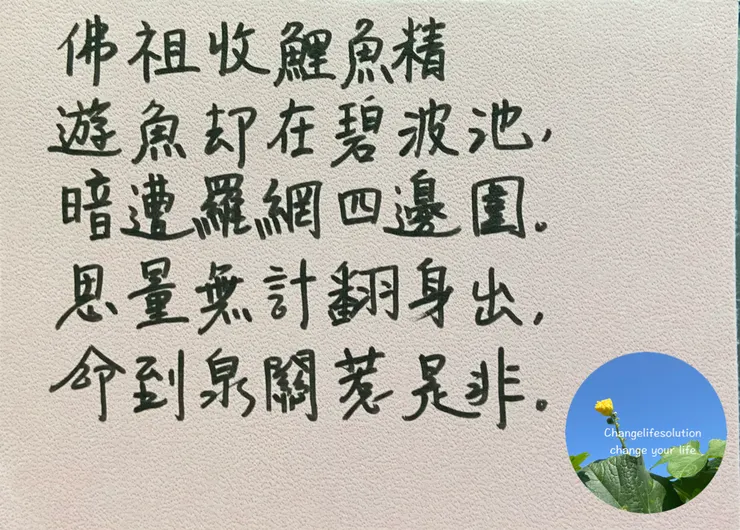 佛祖收鯉魚精
遊魚却在碧波池,
暗遭羅網四邊圍。
思量無計翻身出,
命到泉關惹是非。
Changelifesolution
change your life